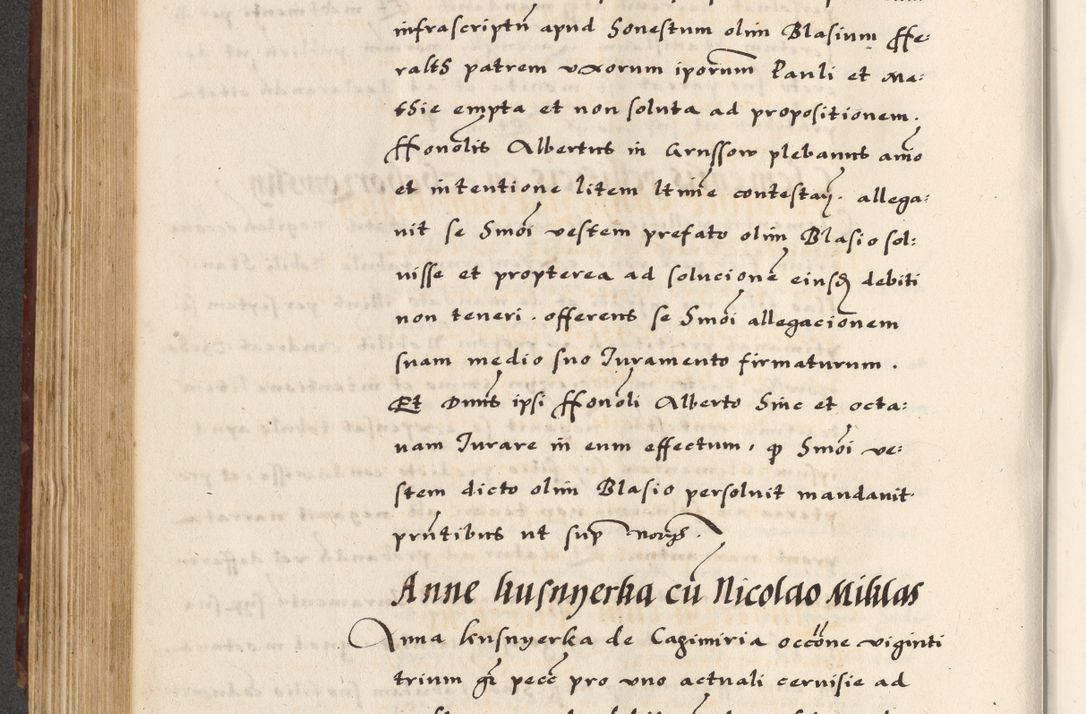 infrascriptũ apud honestum olim Blasium ffe-
ralth patrem uxorum ipõrum Pauli et Ma-
thie empta et non soluta ad propositionem.
ffonõlis Albertus in Grussow plebanus aĩo
et intentione litem ltĩme contestaȷ̃. allega-
uit se hmõi vestem prefato olim Blasio sol-
uisse et propterea ad solucionẽ eiusdẽ debiti
non teneri. offerens se hmõi allegacionem
suam medio suo Iuramento firmaturum.
Et Dnũs ipsi ffonõli Alberto hinc et octa-
uam Iurare in eum effectum, ꝙ hmõi ve-
stem dicto olim Blasio persoluit mandauit
prñtibus ut sup̃
Anne kusnyerka cũ Nicolao Miklas
Anna kusnyerka de Cazimiria occõne viginti
trium gr̃ pecc̃ pro uno actuali ceruisie ad